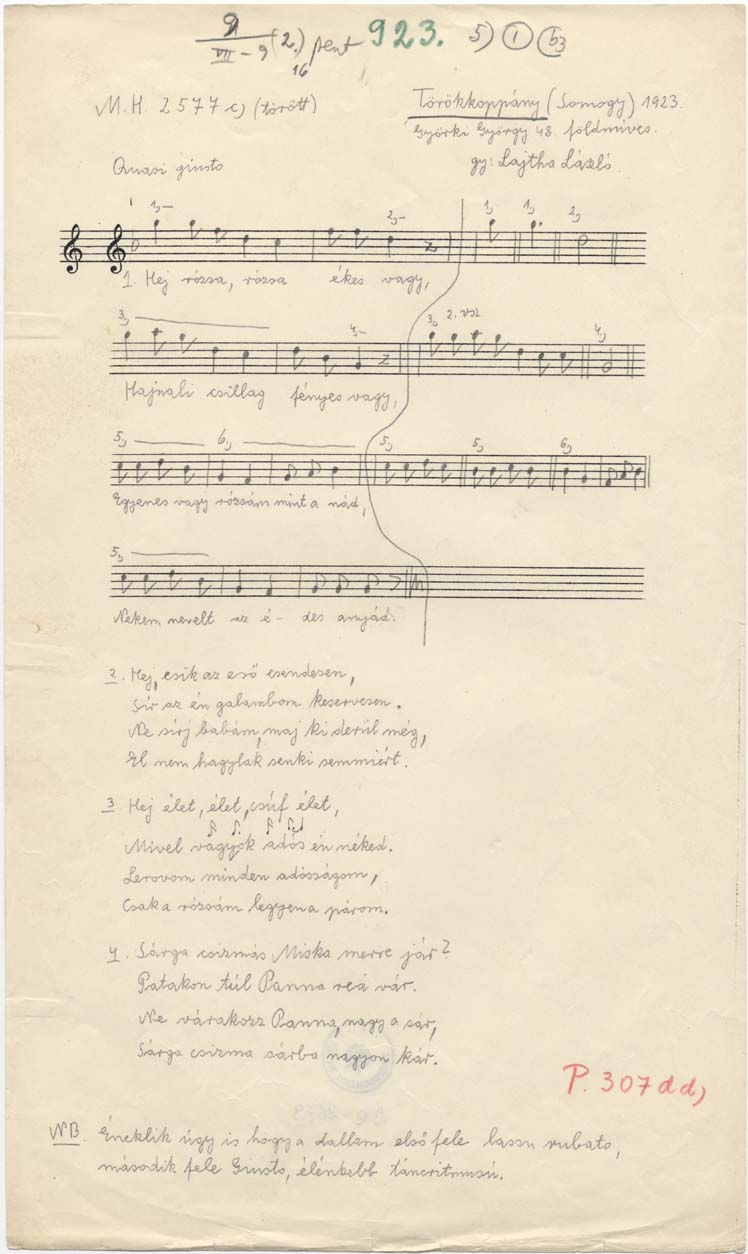 9 (2.) pent 923. 5) 1 b3
VII - 9
16
M.H. 2577 c) (törött)
Törökkoppány (Somogy) 1923.
Györki György 48 földmíves.
Quasi giusto
gy: Lajtha László.
1) 2) 1) 1) 2)
1. Hej rózsa, rózsa ékes vagy,
3) 4) 3) 2. vsz 4)
Hajnali csillag fényes vagy,
5) 6) 5) 5) 6)
Egyenes vagy rózsám mint a nád,
5)
Nekem nevelt az é- des anyád.
2. Hej, esik az eső csendesen,
Sír az én galambom keservesen.
Ne sírj babám, maj ki derül még,
El nem hagylak senki semmiért.
3 Hej élet, élet, csúf élet,
Mivel vagyok adós én néked.
Lerovom minden adósságom,
Csak a rózsám legyen a párom.
4. Sárga csizmás Miska merre jár?
Patakon túl Panna reá vár.
Ne várakozz Panna, nagy a sár,
Sárga csizma sárba nagyon kár.
P. 307dd)
NB. Éneklik úgy is hogy a dallam első fele lassu rubato,
második fele Giusto, élénkebb táncritmusú.